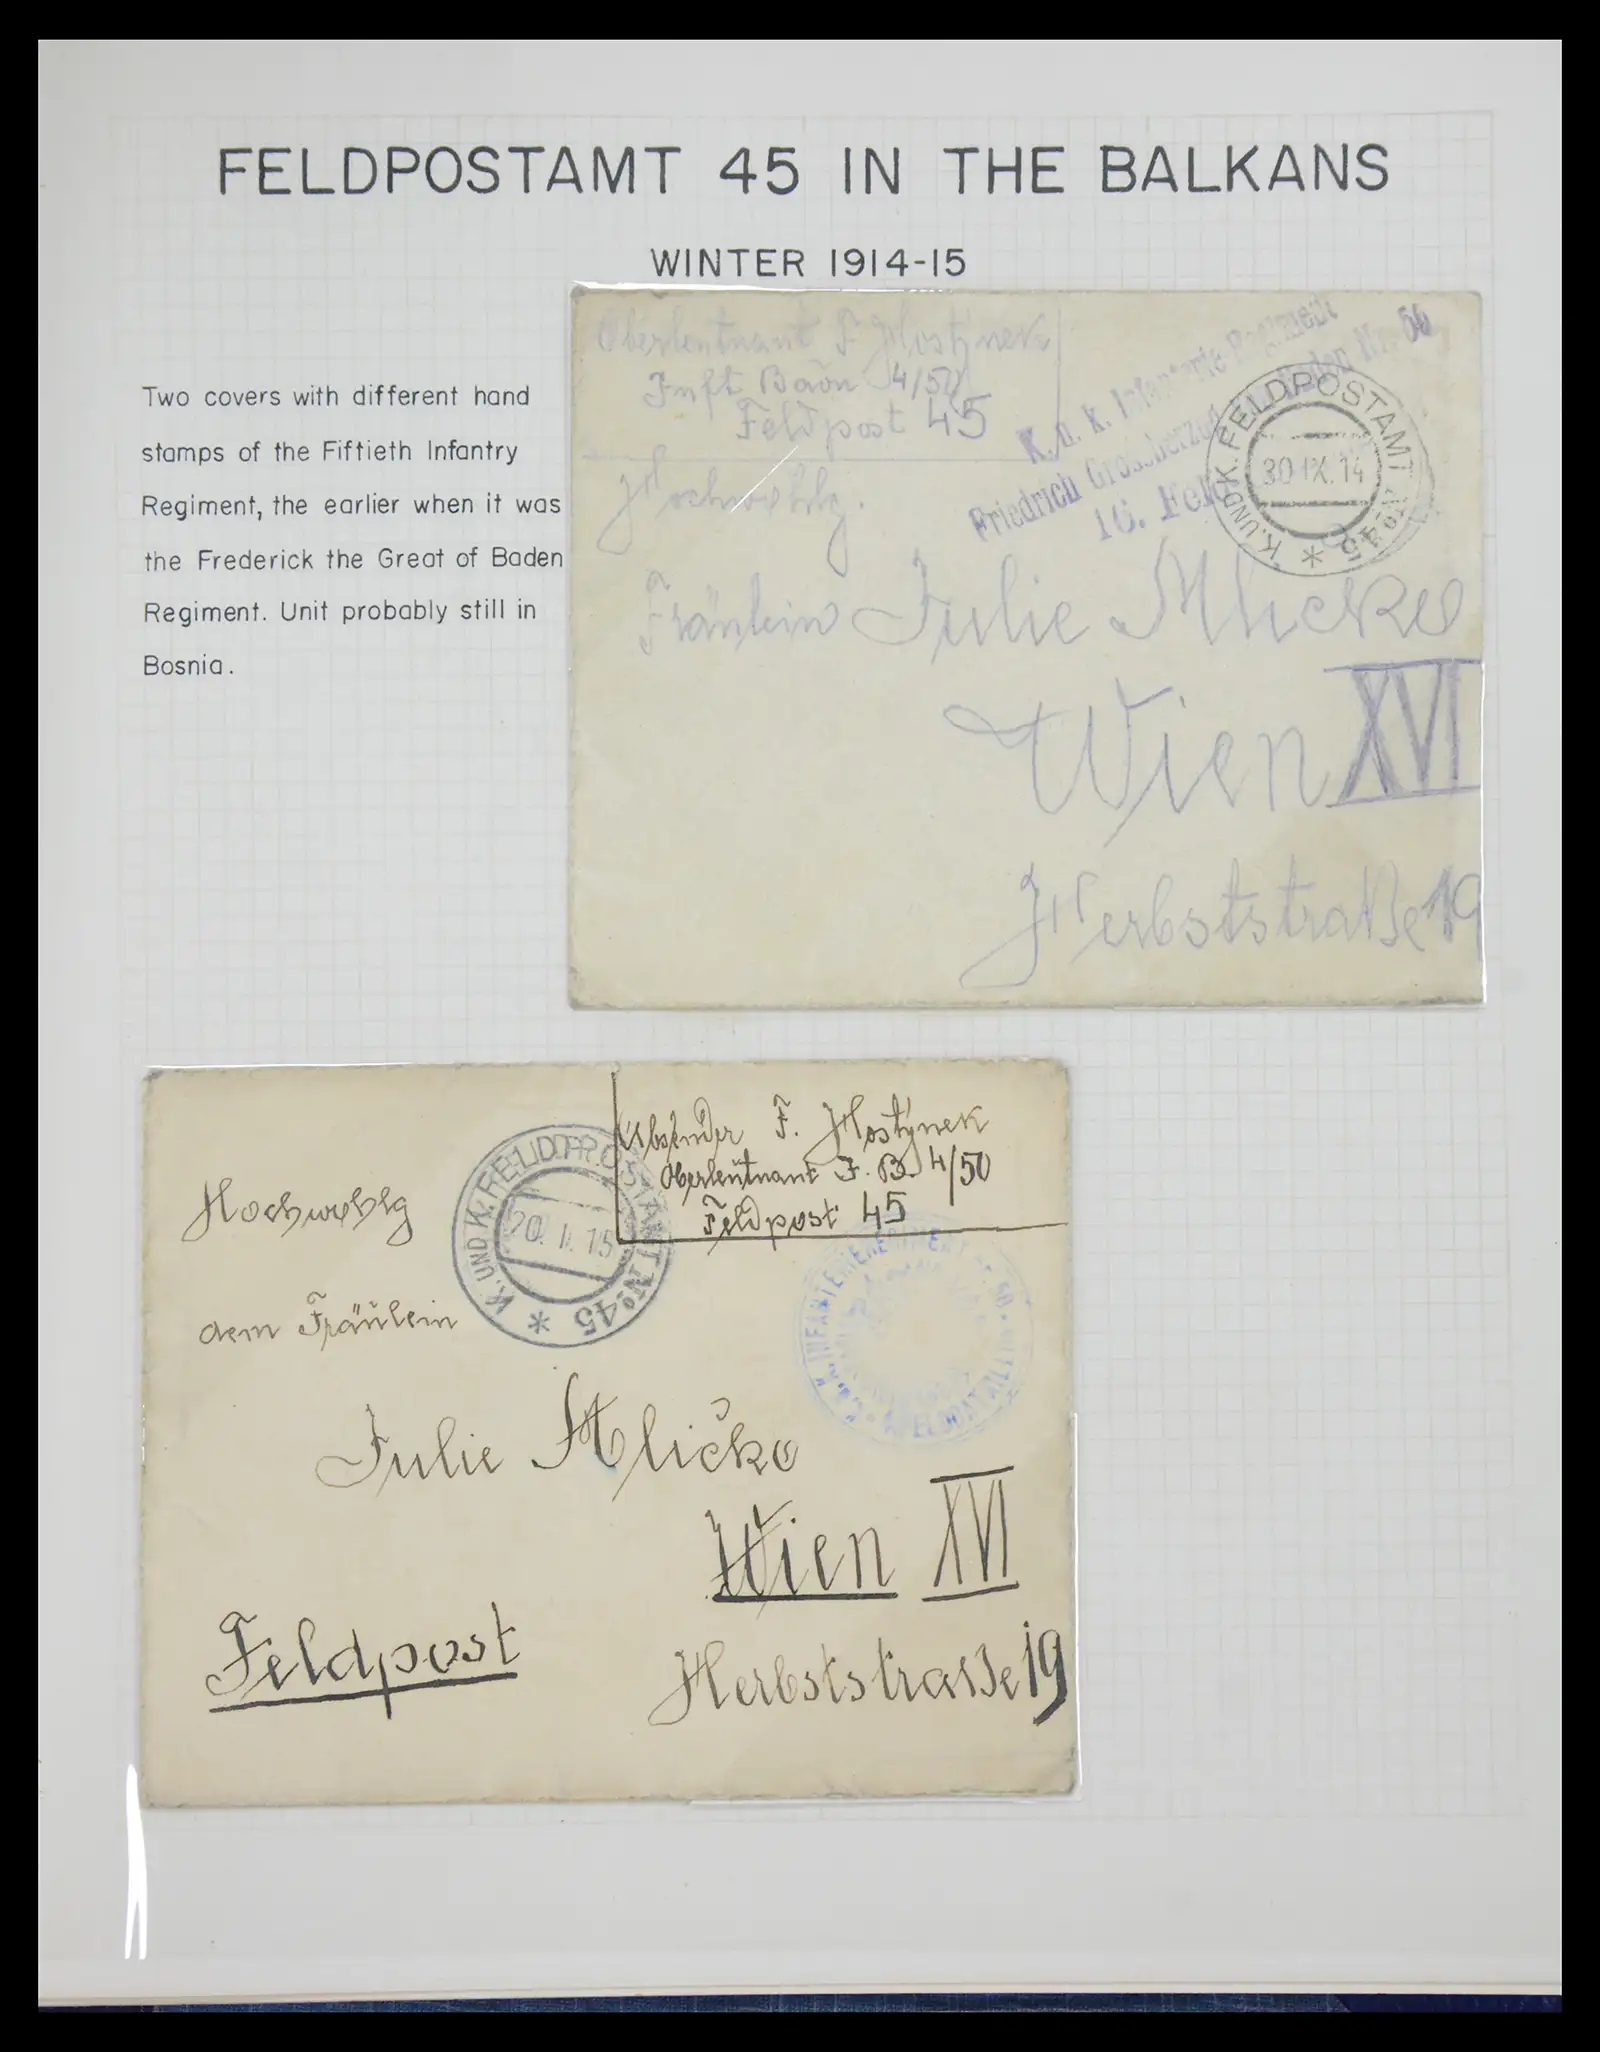 FELDPOSTAMT 45 IN THE BALKANS
WINTER 1914-15
Two covers with different hand
stamps of the Fiftieth Infantry
Regiment, the earlier when it was
the Frederick the Great of Baden
Regiment. Unit probably still in
Bosnia.
Oberleutnant F. Hostýnek
Inft Baon 4/50
Feldpost 45
K. u. k. Infanterie Regiment
Friedrich Grossherzog Baden Nr. 50
16. Feld
K. UND K. FELDPOSTAMT No 45 *
30 IX. 14
Hochwohlg.
Fräulein Julie Mlicko
Wien XVI
Herbststraße 19
Absender F. Hostýnek
Oberleutnant I. B. 4/50
Feldpost 45
K. UND K. FELDPOSTAMT No 45 *
20. I. 15
Hochwohlg
dem Fräulein
Julie Mličko
Wien XVI
Feldpost
Herbststrasse 19